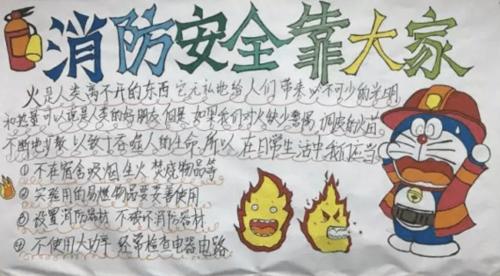 消防安全靠大家
火是人类离不开的东西 它无私地给人们带来必不可少的光明
和热量 可以说是人类的好朋友 但是 如果我们对火缺少警惕 调皮的火苗
不断地 以致于吞噬人的生命,所以,在日常生活中我们应当
①不在宿舍吸烟 生火 焚烧物品等
②实验用的易燃物品要妥善使用
③设置消防器材 不破坏消防器材
④不使用大功率 经常检查电器电路